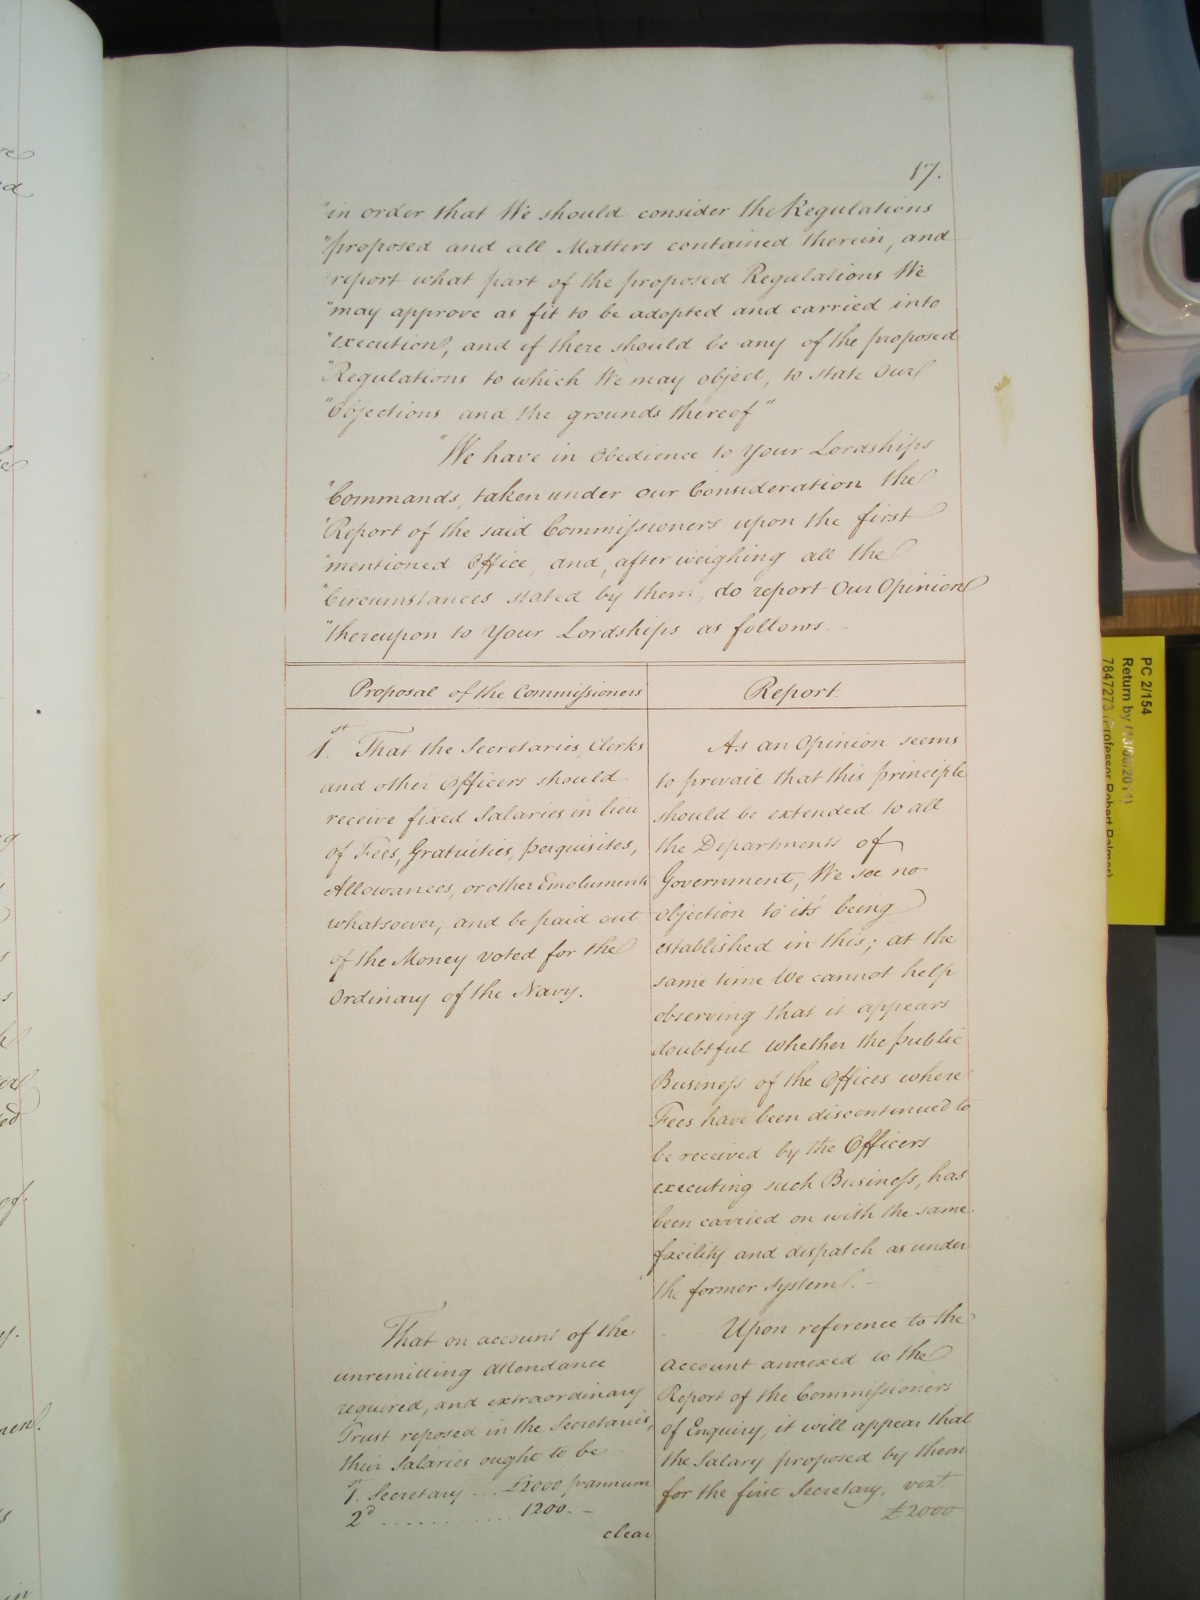 17.
"in order that We should consider the Regulations
"proposed and all Matters contained therein, and
"report what part of the proposed Regulations We
"may approve as fit to be adopted and carried into
"execution, and if there should be any of the proposed
"Regulations to which We may object, to state Our
"Objections and the grounds thereof"
"We have in Obedience to Your Lordships
"Commands, taken under our Consideration the
"Report of the said Commissioners upon the first
"mentioned Office, and, after weighing all the
"Circumstances stated by them, do report Our Opinion
"thereupon to Your Lordships as follows. –
Proposal of the Commissioners
1st. That the Secretaries, Clerks
and other Officers should
receive fixed Salaries in lieu
of Fees, Gratuities, perquisites,
Allowances, or other Emoluments
whatsoever, and be paid out
of the Money voted for the
Ordinary of the Navy.
That on account of the
unremitting attendance
required, and extraordinary
Trust reposed in the Secretaries,
their Salaries ought to be
1st. Secretary ... £2000 p annum
2d ............ 1200. –
clear
Report.
As an Opinion seems
to prevail that this principle
should be extended to all
the Departments of
Government, We see no
objection to it's being
established in this; at the
same time We cannot help
observing that it appears
doubtful whether the public
Business of the Offices where
Fees have been discontinued to
be received by the Officers
executing such Business, has
been carried on with the same
facility and dispatch as under
the former System. –
Upon reference to the
Account annexed to the
Report of the Commissioners
of Enquiry, it will appear that
the Salary proposed by them
for the first Secretary, vizt.
£2000
PC 2/154
Return by (13/06/2011)
7847273 (Professor Robert Palmer)